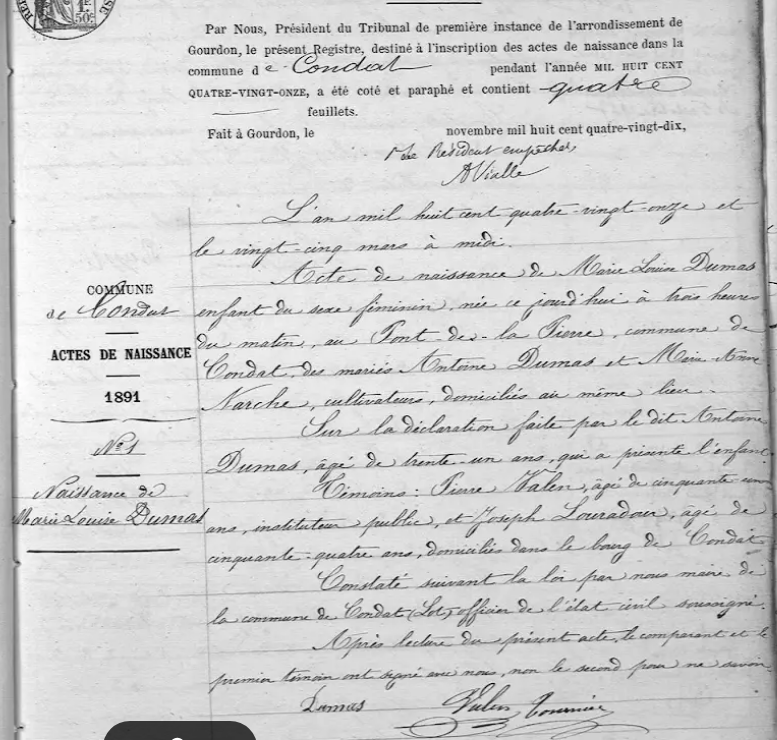 1F.
50c
Par Nous, Président du Tribunal de première instance de l'arrondissement de
Gourdon, le présent Registre, destiné à l'inscription des actes de naissance dans la
commune de Condat pendant l'année MIL HUIT CENT
QUATRE-VINGT-ONZE, a été coté et paraphé et contient quatre
feuillets.
Fait à Gourdon, le novembre mil huit cent quatre-vingt-dix,
Président empêché,
AVialle
L'an mil huit cent quatre-vingt-onze et
le vingt-cinq mars à midi.
Acte de naissance de Marie Louise Dumas
enfant du sexe féminin, née ce jourd'hui à trois heures
du matin, au Pont-de-la Pierre, commune de
Condat, des mariés Antoine Dumas et Marie-Anne
cultivateurs, domiciliés au même lieu.
Sur la déclaration faite par le dit Antoine
Dumas, âgé de trente-un ans, qui a présenté l'enfant.
Témoins : Pierre Valen, âgé de cinquante un
ans, instituteur public, et Joseph Louradour, âgé de
cinquante-quatre ans, domiciliés dans le bourg de Condat
Constaté suivant la loi par nous maire de
la commune de Condat (Lot) officier de l'état civil soussigné.
Après lecture du présent acte, le comparant et le
premier témoin ont signé avec nous, non le second pour ne savoir.
Dumas Valen Tournier
COMMUNE
de Condat
ACTES DE NAISSANCE
1891
N° 1
Naissance de
Marie Louise Dumas